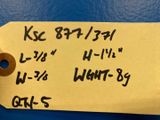 KSC 877/371
L-7/8" H-1½"
W-7/8 WGHT-8g
QTY-5